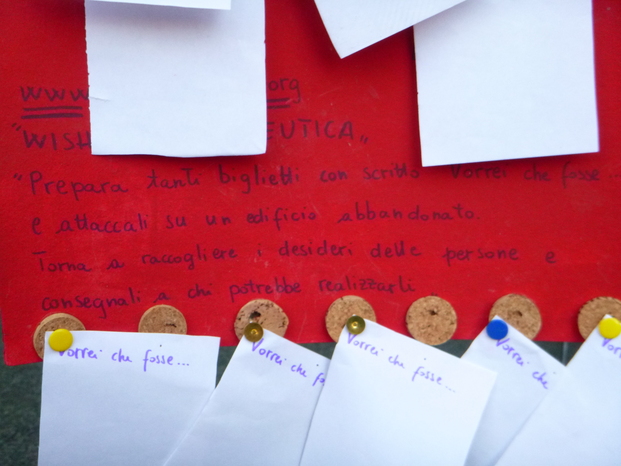 www org
"WISH EUTICA"
"Prepara tanti biglietti con scritto Vorrei che fosse
e attaccali su un edificio abbandonato.
Torna a raccogliere i desideri delle persone e
consegnali a chi potrebbe realizzarli
Vorrei che fosse...
Vorrei che fo
Vorrei che fosse...
Vorrei che
Vor